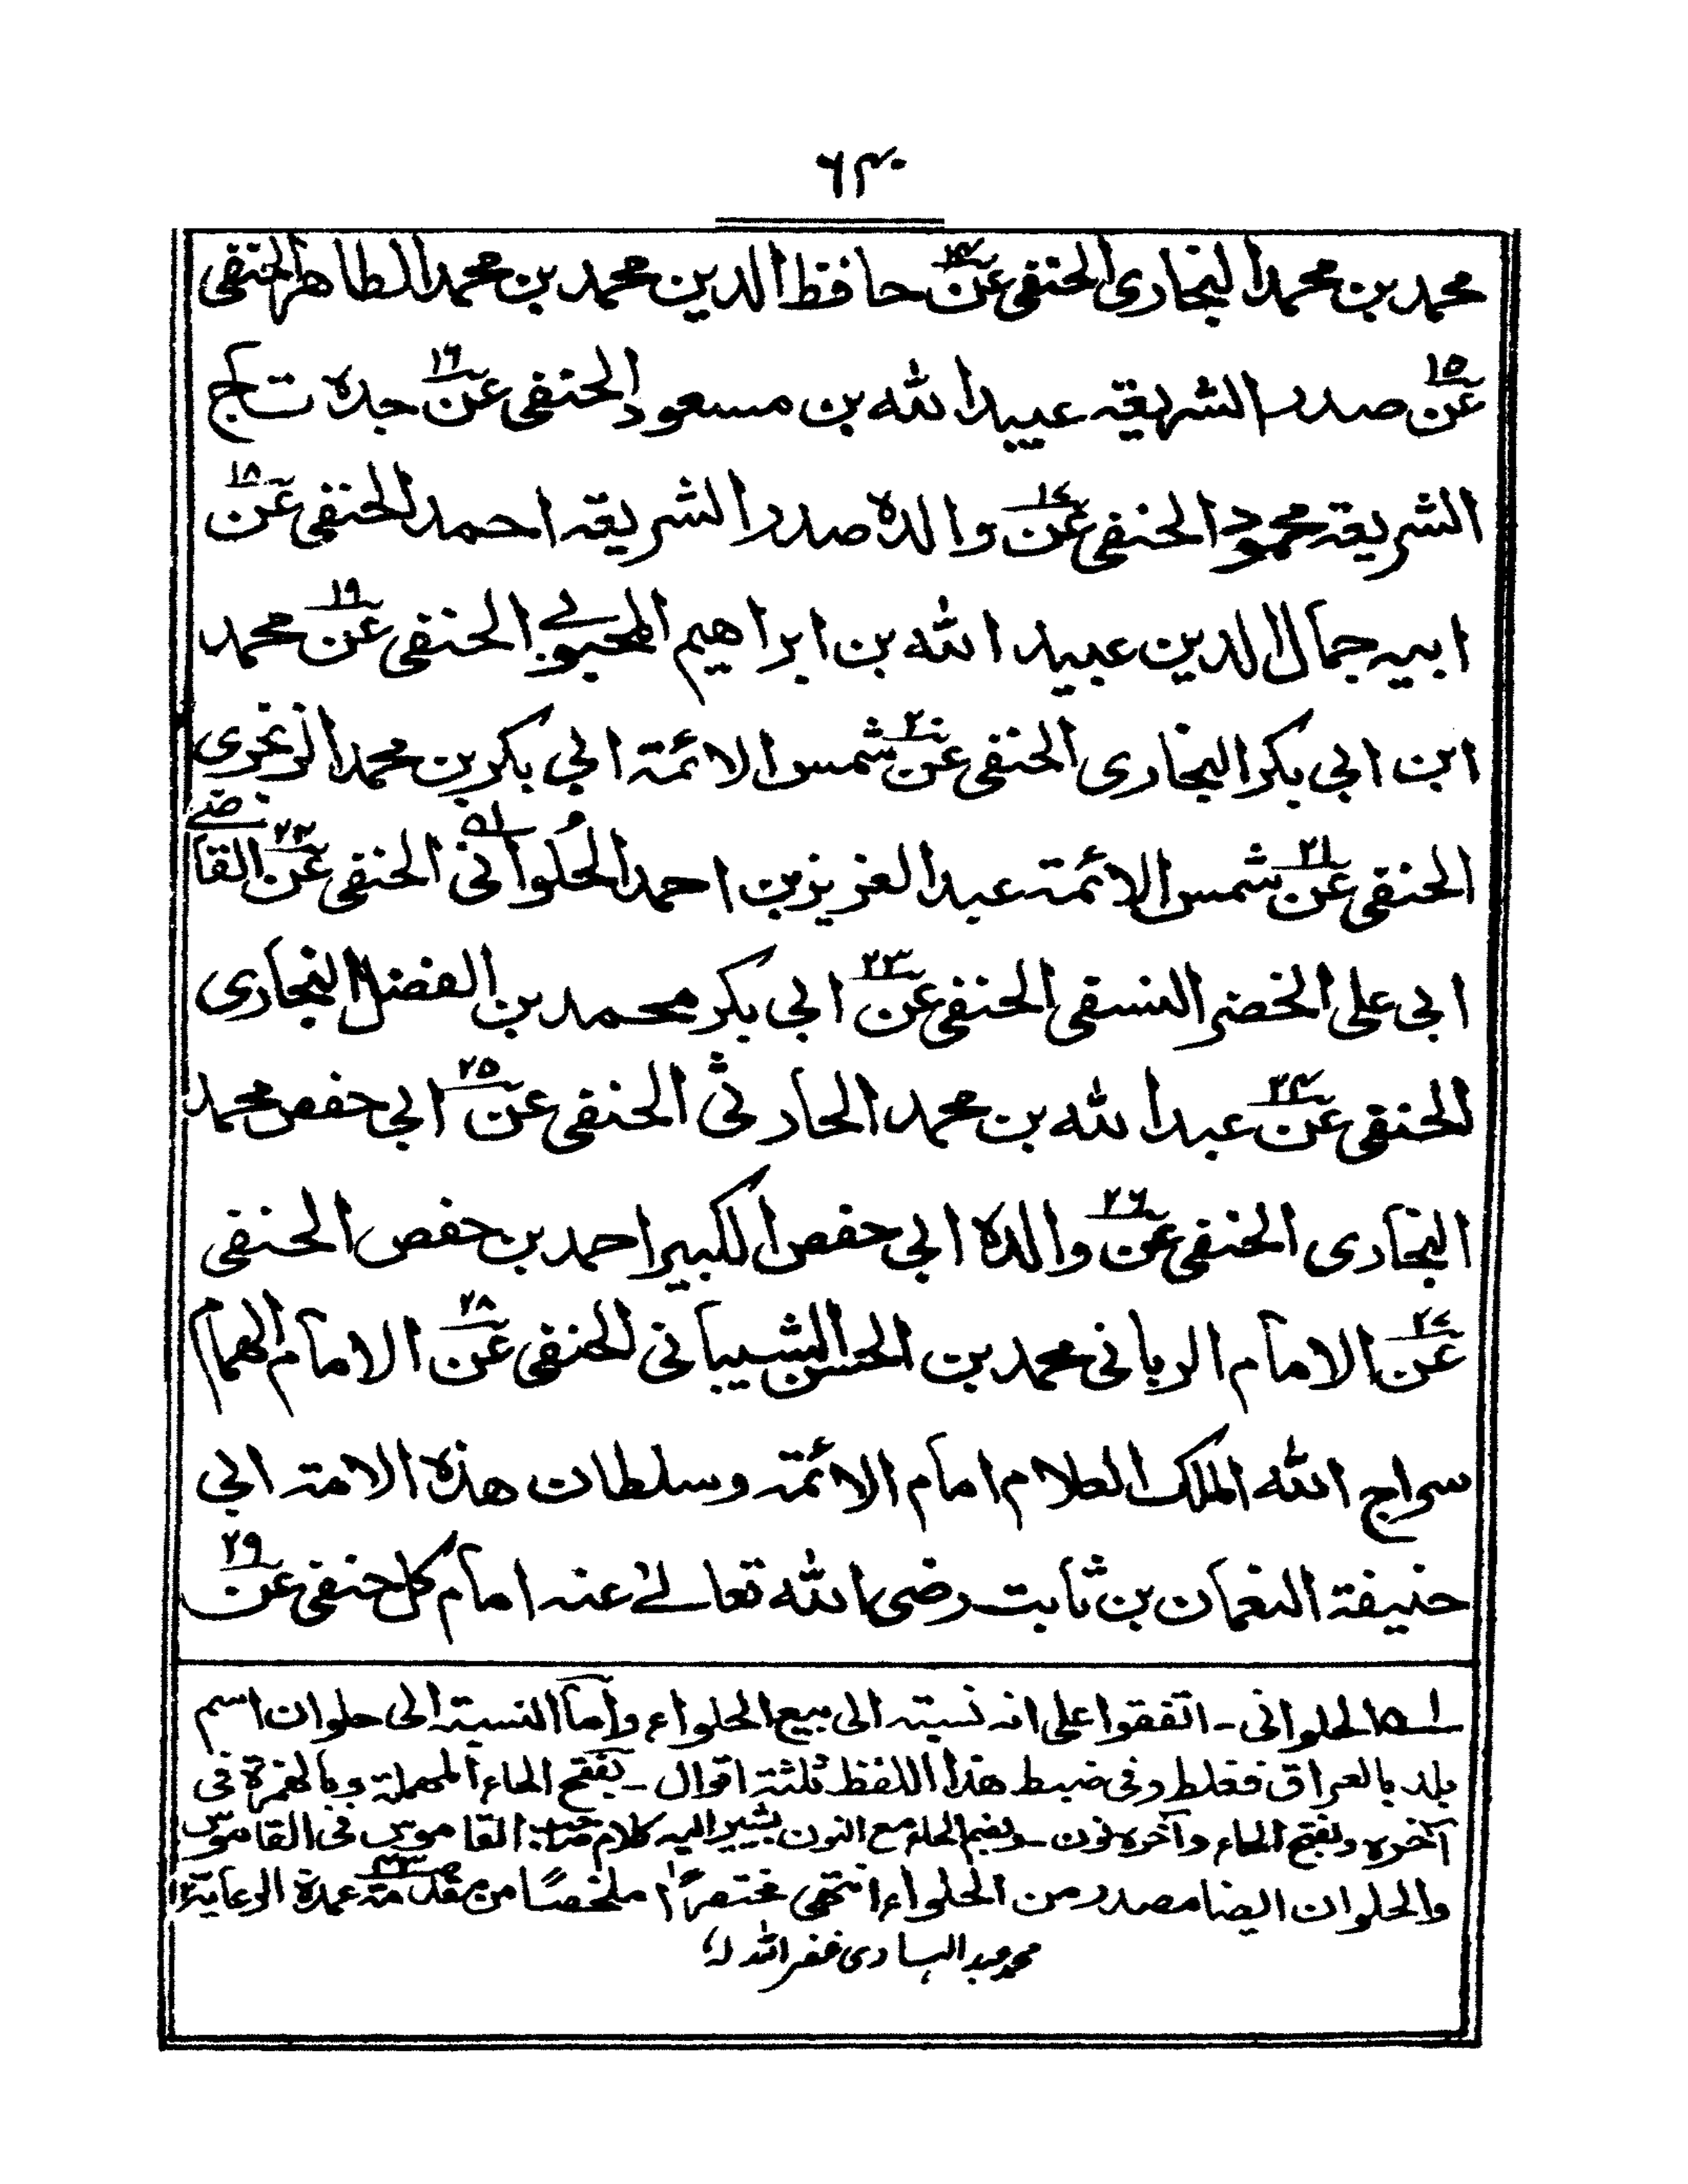 ۶۴۰
محمد بن محمد البخاری الحنفی عن۱۴ حافظ الدین محمد بن محمد الطاهر الحنفی
عن۱۵ صدر الشریعة عبید الله بن مسعود الحنفی عن۱۶ جده تاج
الشریعة محمود الحنفی عن۱۷ والده صدر الشریعة احمد الحنفی عن۱۸
ابیه جمال الدین عبید الله بن ابراهیم المحبوبی الحنفی عن۱۹ محمد
ابن ابی بکر البخاری الحنفی عن۲۰ شمس الائمة ابی بکر بن محمد الزرنجری
الحنفی عن۲۱ شمس الائمة عبد العزیز بن احمد الحُلوانی الحنفی عن۲۲ القاضی
ابی علی الخضر النسفی الحنفی عن۲۳ ابی بکر محمد بن الفضل البخاری
الحنفی عن۲۴ عبد الله بن محمد الحارثی الحنفی عن۲۵ ابی حفص محمد
البخاری الحنفی عن۲۶ والده ابی حفص الکبیر احمد بن حفص الحنفی
عن۲۷ الامام الربانی محمد بن الحسن الشیبانی الحنفی عن۲۸ الامام الهمام
سراج الله الملک العلام امام الائمة وسلطان هذه الامة ابی
حنیفة النعمان بن ثابت رضی الله تعالیٰ عنه امام کل حنفی عن۲۹
الحلوانی - اتفقوا علی انه نسبته الی بیع الحلواء واما النسبة الی حلوان اسم
بلد بالعراق فغلط وفی ضبط هذا اللفظ ثلثة اقوال - بفتح الحاء المهملة وبالهمزة فی
آخره وبفتح الحاء وآخره نون - وبضم الحاء مع النون یشیر الیه کلام صاحب القاموس فی القاموس
والحلوان ایضا مصدر من الحلواء انتهی مختصرًا ملخصًا من مقدمة عمدة الرعایة
محمد عبد الهادی غفر الله له